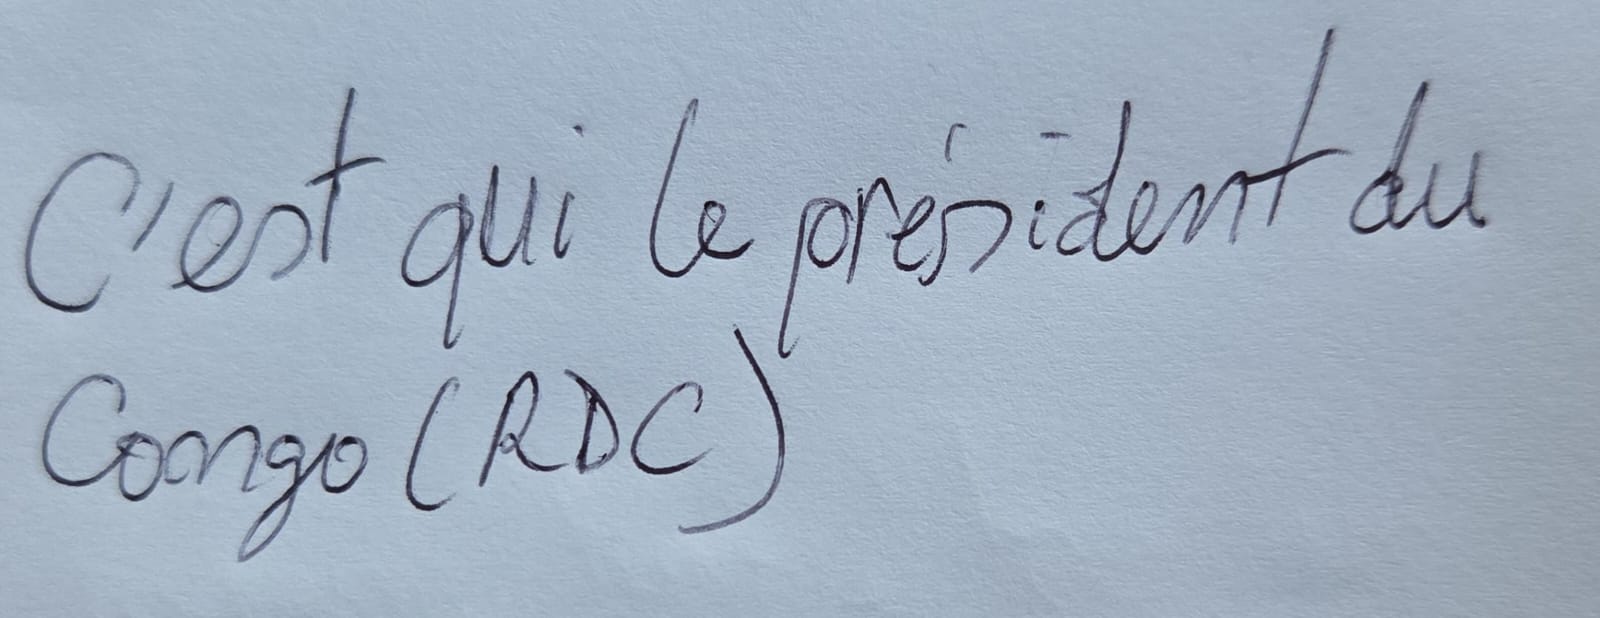 C'est qui le président du
Congo (RDC)